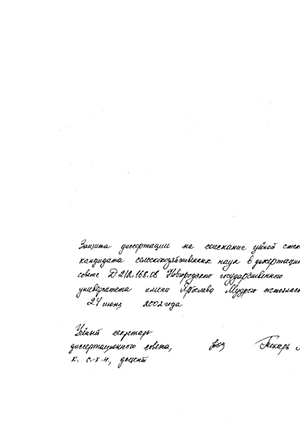 Защита диссертации на соискание учёной степ
кандидата сельскохозяйственных наук в диссертацио
совете Д 212.168.08 Новгородского государственного
университета имени Ярослава Мудрого состоялас
24 июня 2002 года
Учёный секретарь
диссертационного совета,
к. с-х.н, доцент